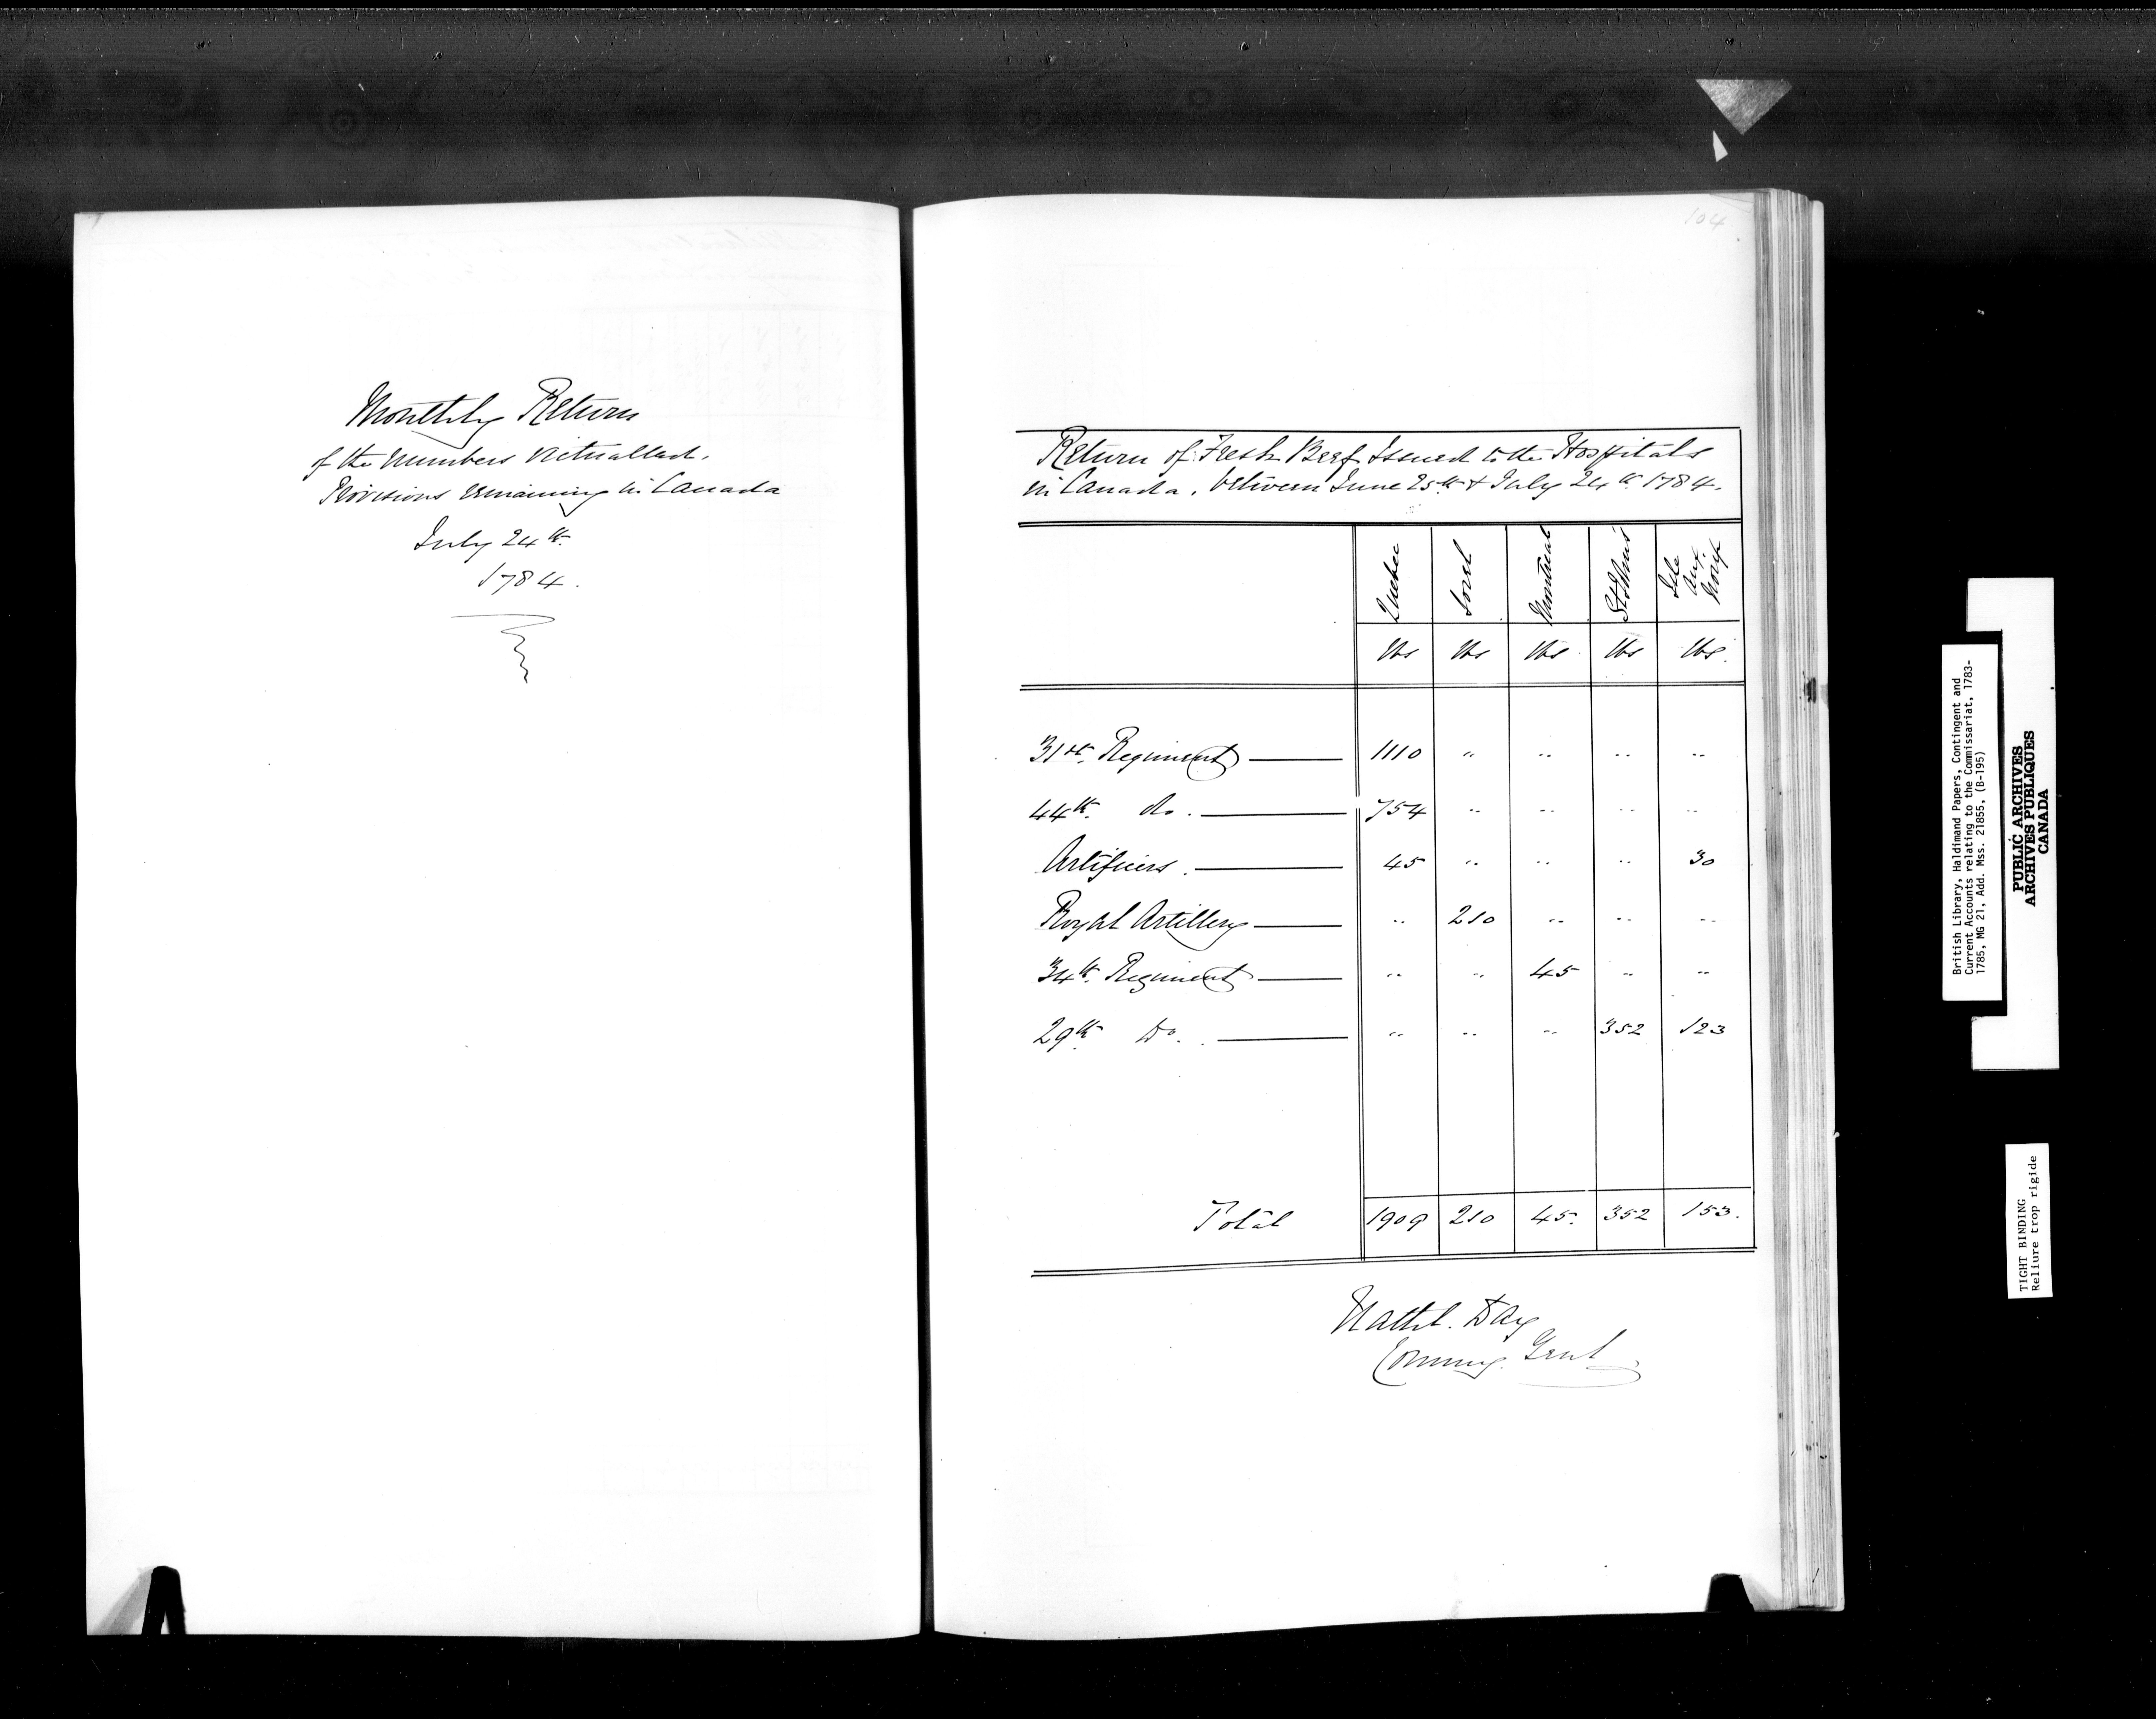 Monthly Return
of the Numbers Victualled.
Provisions remaining in Canada
July 24th.
1784.
104
Return of Fresh Beef Issued to the Hospitals
in Canada, between June 25th & July 24th 1784.
Quebec Sorel Montreal St Johns Isle aux Noix
lbs lbs lbs lbs lbs.
31st. Regiment 1110 " " " "
44th. do. 754 " " " "
Artificers. 45 " " " 30
Royal Artillery " 210 " " "
34th. Regiment " " 45 " "
29th Do. " " " 352 123
Total 1909 210 45. 352 153.
Nathl. Day
Commy. Genl
British Library, Haldimand Papers, Contingent and
Current Accounts relating to the Commissariat, 1783-
1785, MG 21, Add. Mss. 21855, (B-195)
PUBLIC ARCHIVES
ARCHIVES PUBLIQUES
CANADA
TIGHT BINDING
Reliure trop rigide